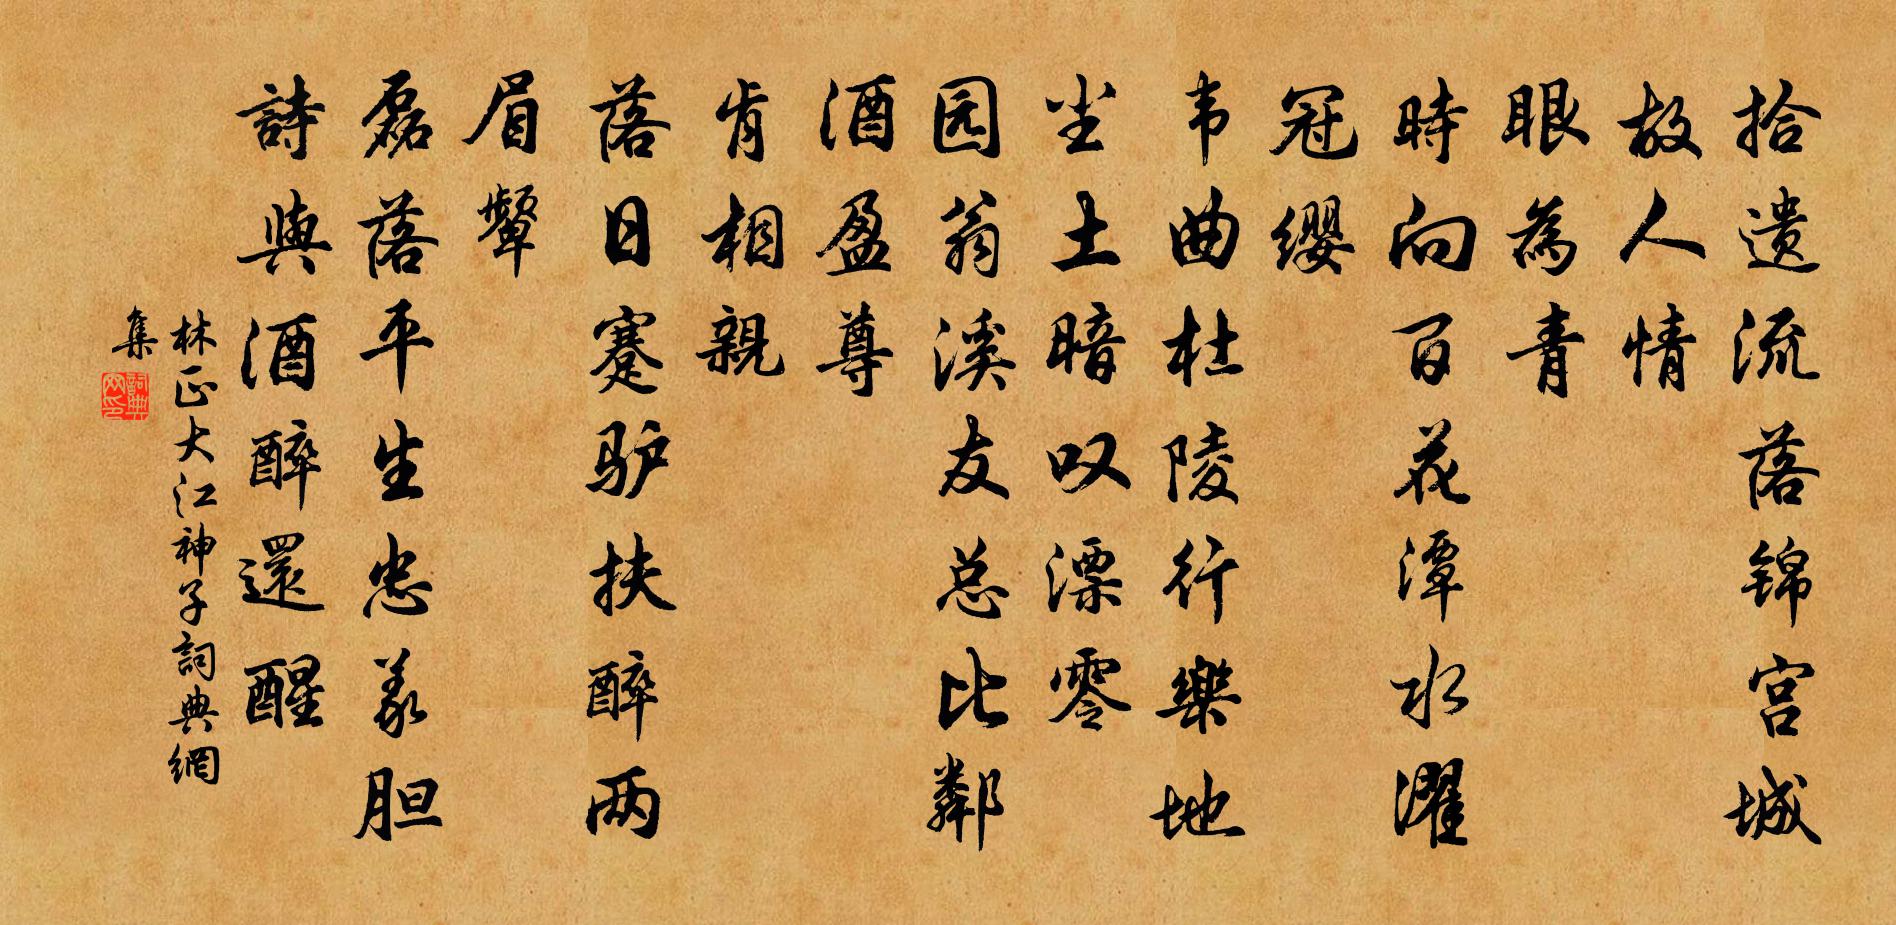 拾遗流落锦宫城
故人情
眼為青
時向百花潭水濯
冠缨
韦曲杜陵行樂地
尘土暗叹漂零
园翁溪友总比鄰
酒盈尊
肯相親
落日蹇驴扶醉两
眉顰
磊落平生忠义胆
詩與酒醉還醒
林正大江神子詞典網
集
詞典
网印